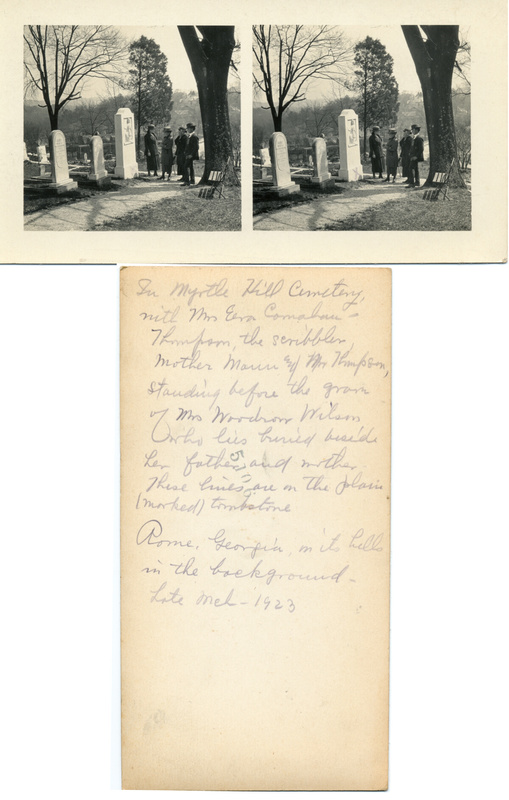 In Myrtle Hill Cemetery,
with Mrs Eera Carnahan -
Thompson, the scribbler,
Mother Mann & Mr Thompson,
standing before the grave
of Mrs Woodrow Wilson
(who lies buried beside
her father and mother
These lines are on the plain
(marked) tombstone
Rome, Georgia, on its hills
in the background -
Late Mch - 1923